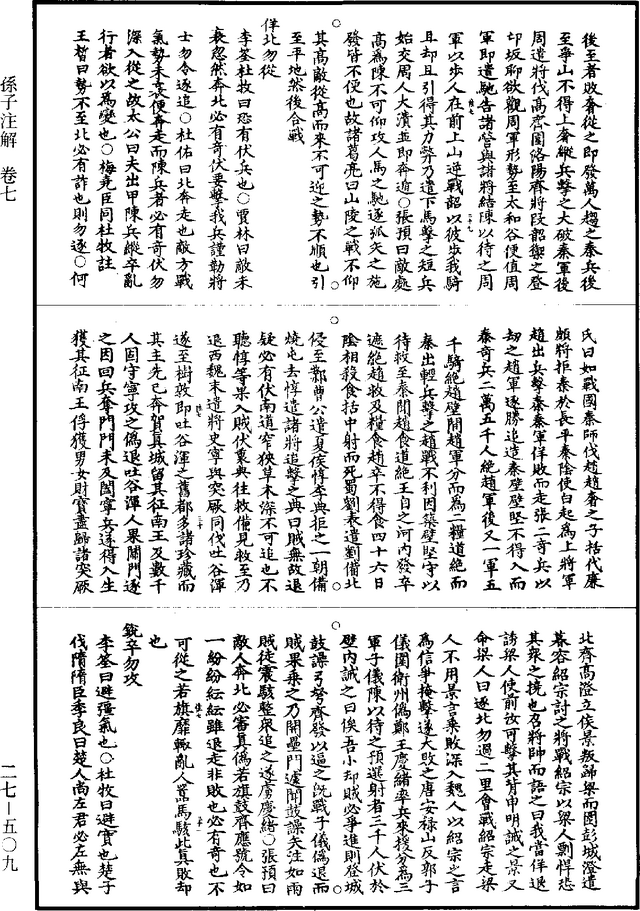 後至者敗奢從之即發萬人趨之秦兵後
至爭山不得上奢縱兵擊之大破秦軍後
周遣將伐高齊圍洛陽齊將段韶禦之登
邙坂聊欲觀周軍形勢至太和谷便值周
軍即遣馳告諸營與諸將結陳以待之周
軍以步人在前上山逆戰韶以彼步我騎
且却且引得其力弊乃遣下馬擊之短兵
始交周人大潰並即奔遁○張預曰敵處
高為陳不可仰攻人馬之馳逐弧矢之施
發皆不便也故諸葛亮曰山陵之戰不仰
其高敵從高而來不可迎之勢不順也引
至平地然後合戰
佯北勿從
李筌杜牧曰恐有伏兵也○賈林曰敵未
衰忽然奔北必有奇伏要擊我兵謹勒將
士勿令逐追○杜佑曰北奔走也敵方戰
氣勢未衰便奔走而陳兵者必有奇伏勿
深入從之故太公曰夫出甲陳兵縱卒亂
行者欲以為變也○梅堯臣同杜牧註
王晳曰勢不至北必有詐也則勿逐○何
氏曰如戰國秦師伐趙趙奢之子括代廉
頗將拒秦於長平秦陰使白起為上將軍
趙出兵擊秦秦軍佯敗而走張二奇兵以
劫之趙軍逐勝追造秦壁壁堅不得入而
秦奇兵二萬五千人絕趙軍後又一軍五
千騎絕趙壁間趙軍分而為二糧道絕而
秦出輕兵擊之趙戰不利因築壁堅守以
待救至秦聞趙食道絕王自之河內發卒
遮絕趙救及糧食趙卒不得食四十六日
陰相殺食括中射而死蜀劉表遣劉備北
侵至鄴曹公遣夏侯惇李典拒之一朝備
燒屯去惇遣諸將追擊之典曰賊無故退
疑必有伏南道窄狹草木深不可追也不
聽惇等果入賊伏裏典往救備見救至乃
退西魏末遣將史寧與突厥同伐吐谷渾
遂至樹敦即吐谷渾之舊都多諸珍藏而
其主先已奔賀真城留其征南王及數千
人固守寧攻之偽退吐谷渾人果開門逐
之因回兵奪門門未及闔寧兵遂得入生
獲其征南王俘獲男女財寶盡歸諸突厥
北齊高澄立侯景叛歸梁而圍彭城澄遣
慕容紹宗討之將戰紹宗以梁人剽悍恐
其衆之撓也召將帥而語之曰我當佯退
誘梁人使前汝可擊其背申明誡之景又
命梁人曰逐北勿過二里會戰紹宗走梁
人不用景言乘敗深入魏人以紹宗之言
為信爭掩擊遂大敗之唐安祿山反郭子
儀圍衛州偽鄭王慶緒率兵來援分為三
軍子儀陳以待之預選射者三千人伏於
壁內誡之曰俟吾小却賊必爭進則登城
鼓譟弓弩齊發以逼之既戰子儀偽退而
賊果乘之乃開壘門遽聞鼓譟矢注如雨
賊徒震駭整衆追之遂虜慶緒○張預曰
敵人奔北必審真偽若旗鼓齊應號令如
一紛紛紜紜雖退走非敗也必有奇也不
可從之若旗靡轍亂人囂馬駭此真敗却
也
銳卒勿攻
李筌曰避彊氣也○杜牧曰避實也楚子
伐隋隋臣季良曰楚人尚左君必左無與
孫子注解 卷七
二七—五〇九